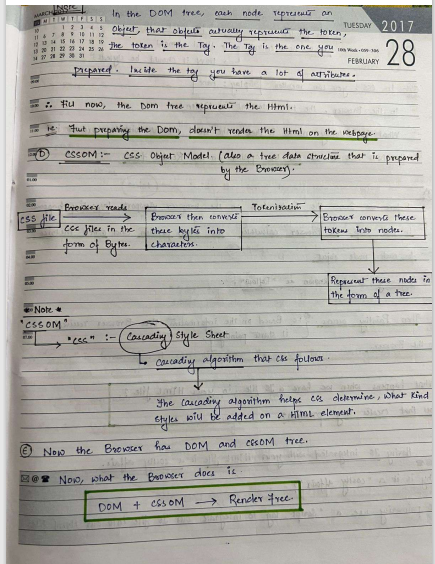 Note
In the DOM tree, each node represents an
Object, that objects actually represents the token,
the token is the Tag. The Tag is the one you
prepared. Incide the tag you have a lot of attributes.
TUESDAY 2017
28
FEBRUARY
M T W T F S S
∴ Till now, the Dom tree represents the Html.
Just preparing the DOM, doesn't render the Html on the webpage.
(D) CSSOM :- CSS Object Model. (also a tree data structure that is prepared
by the Browser).
CSS file
Browser reads
CSS files in the
form of Bytes.
Browser then converts
these bytes into
characters.
Tokenisation
Browser converts these
tokens into nodes.
Represent these nodes in
the form of a tree.
* Note *
"CSSOM"
"CSS" :- Cascading Style Sheet
Cascading algorithm that CSS follows.
The Cascading algorithm helps CSS determine, what kind
styles will be added on a HTML element.
(E) Now the Browser has DOM and CSSOM tree.
Now, what the Browser does is
DOM + CSSOM → Render Tree.